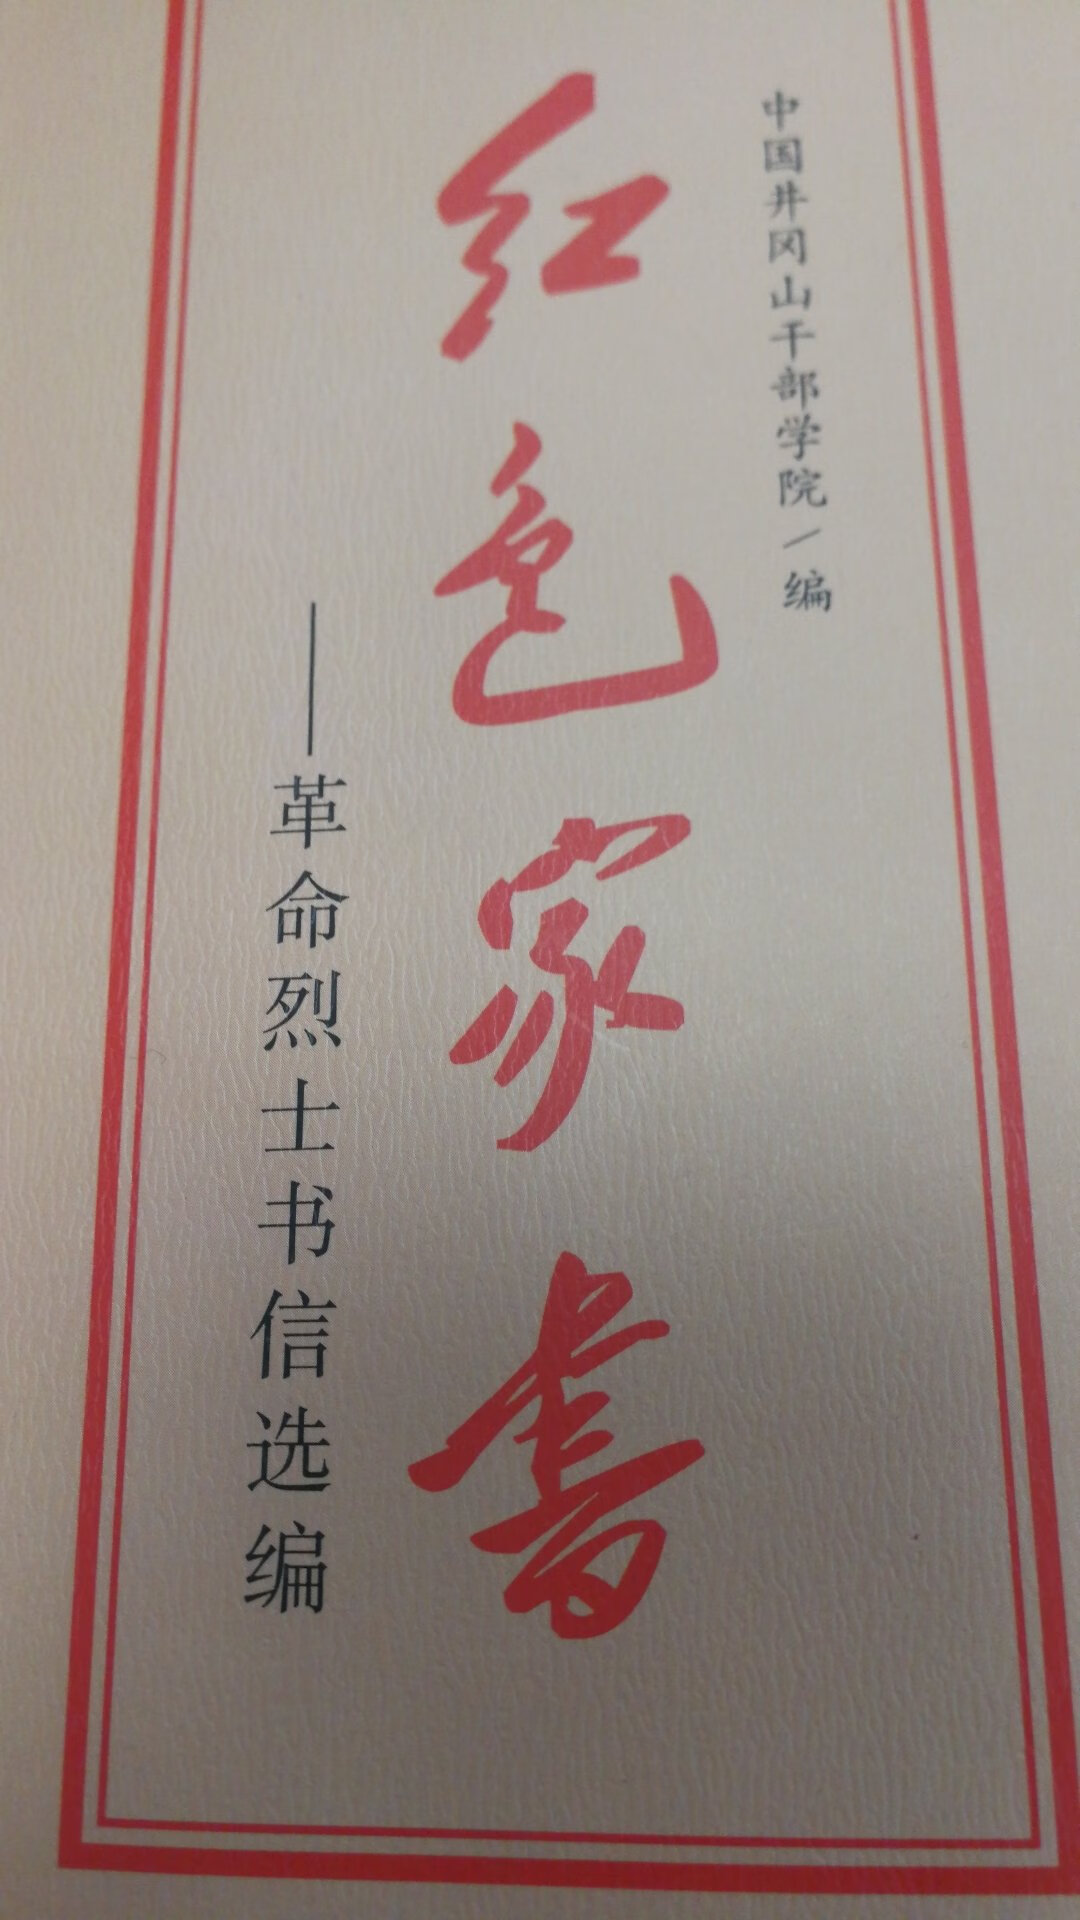 中国井冈山干部学院/编
红色家书
——革命烈士书信选编